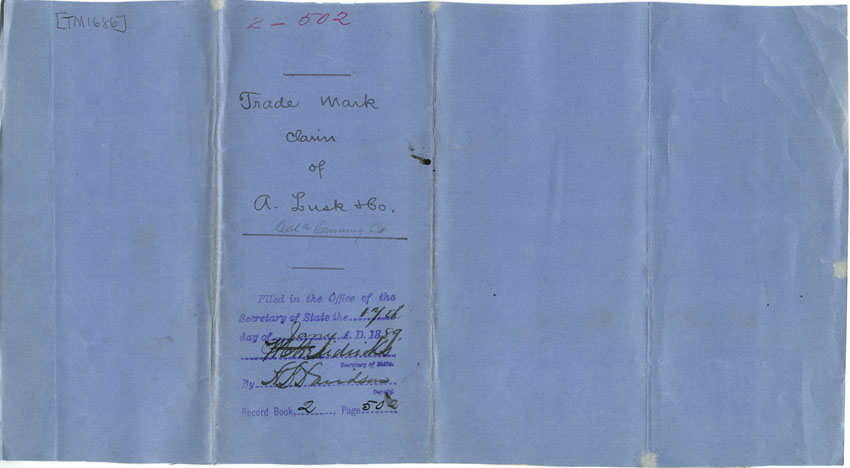 [TM1686]
2-502
Trade Mark
claim
of
A. Lusk & Co.
Cal a Canning Co
Filed in the Office of the
Secretary of State the 17th
day of Jany A. D. 1889.
Secretary of State.
By Davidson
Deputy.
Record Book, 2, Page 502